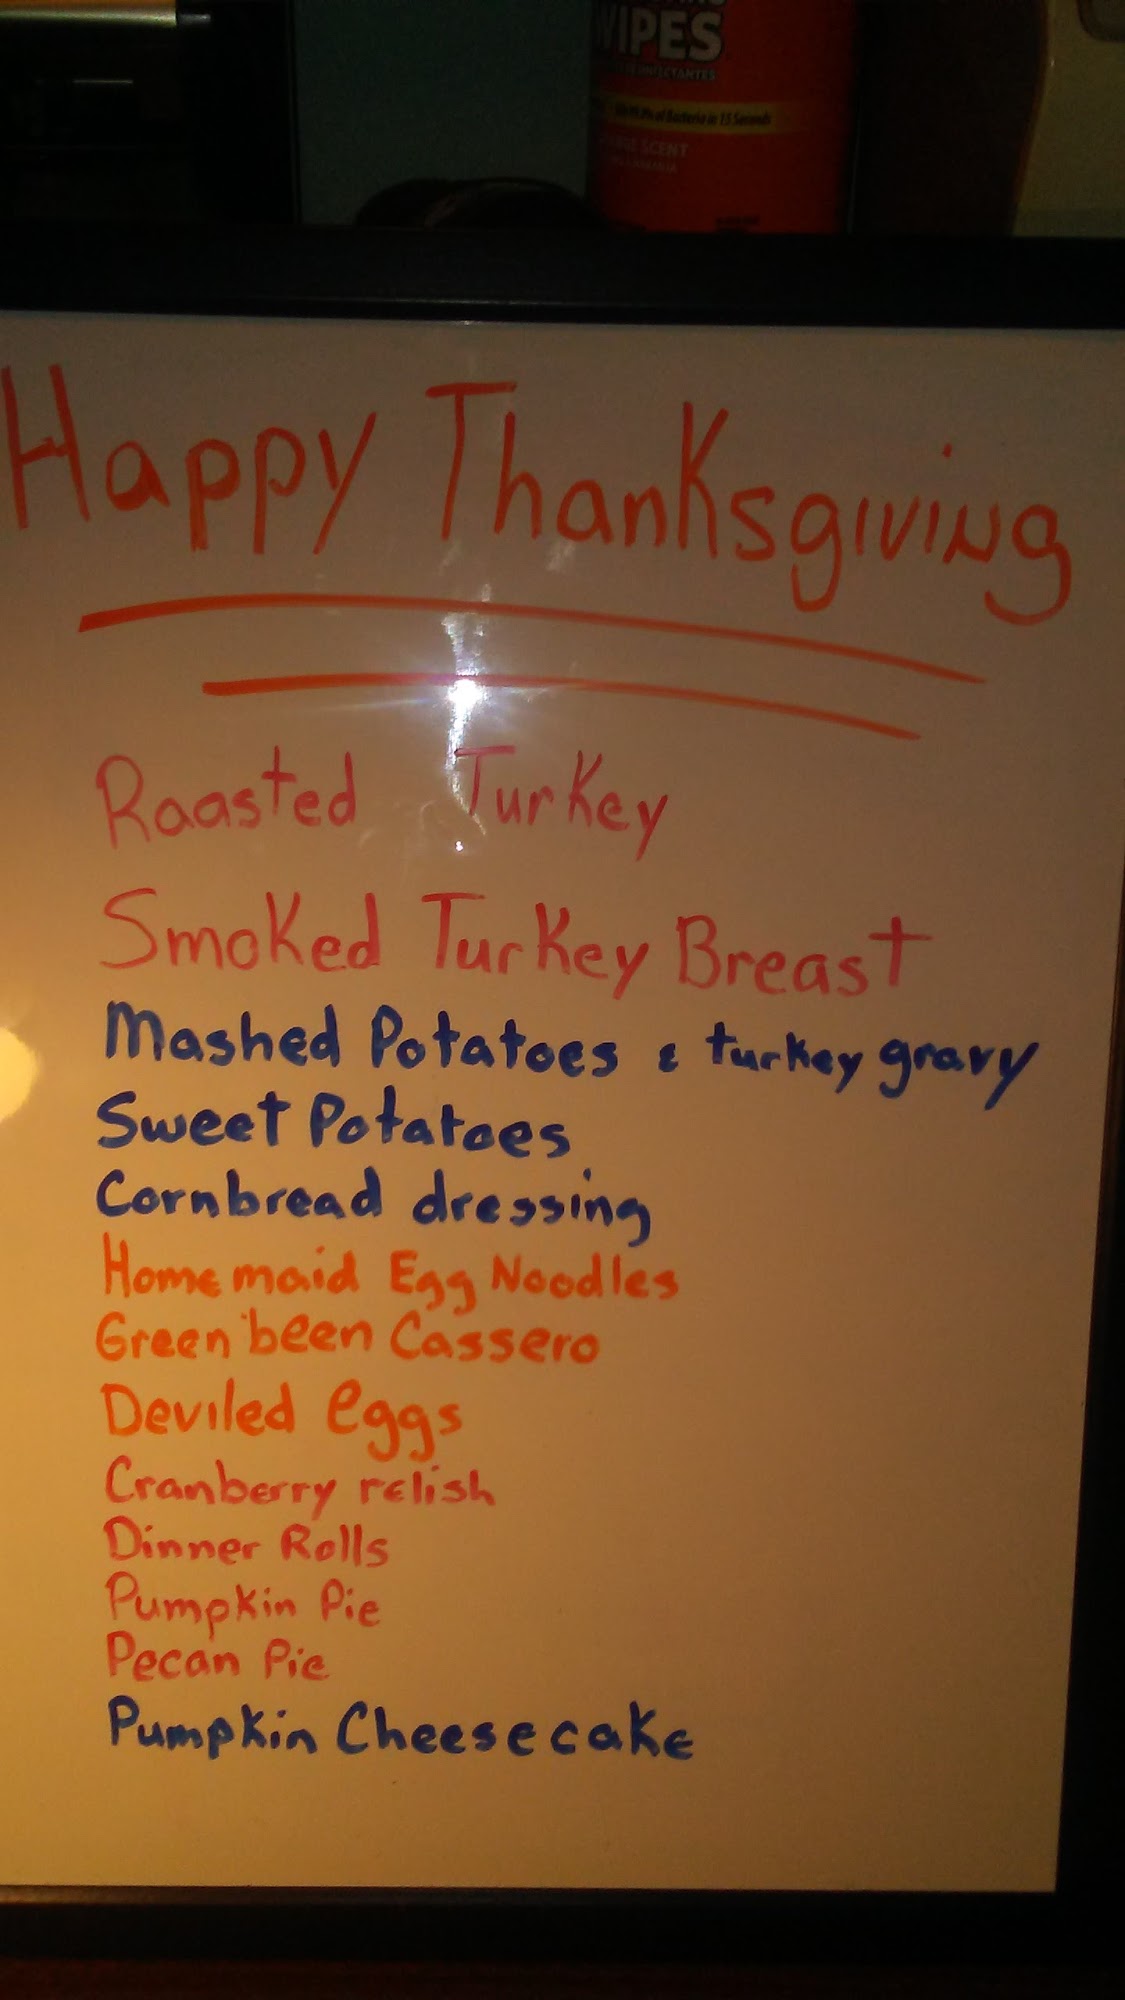 WIPES
99.9% of Bacteria in 15 Seconds
SCENT
Happy Thanksgiving
Raasted Turkey
Smoked Turkey Breast
Mashed Potatoes & turkey gravy
Sweet Potatoes
Cornbread dressing
Homemaid Egg Noodles
Green been Cassero
Deviled eggs
Cranberry relish
Dinner Rolls
Pumpkin Pie
Pecan Pie
Pumpkin Cheesecake